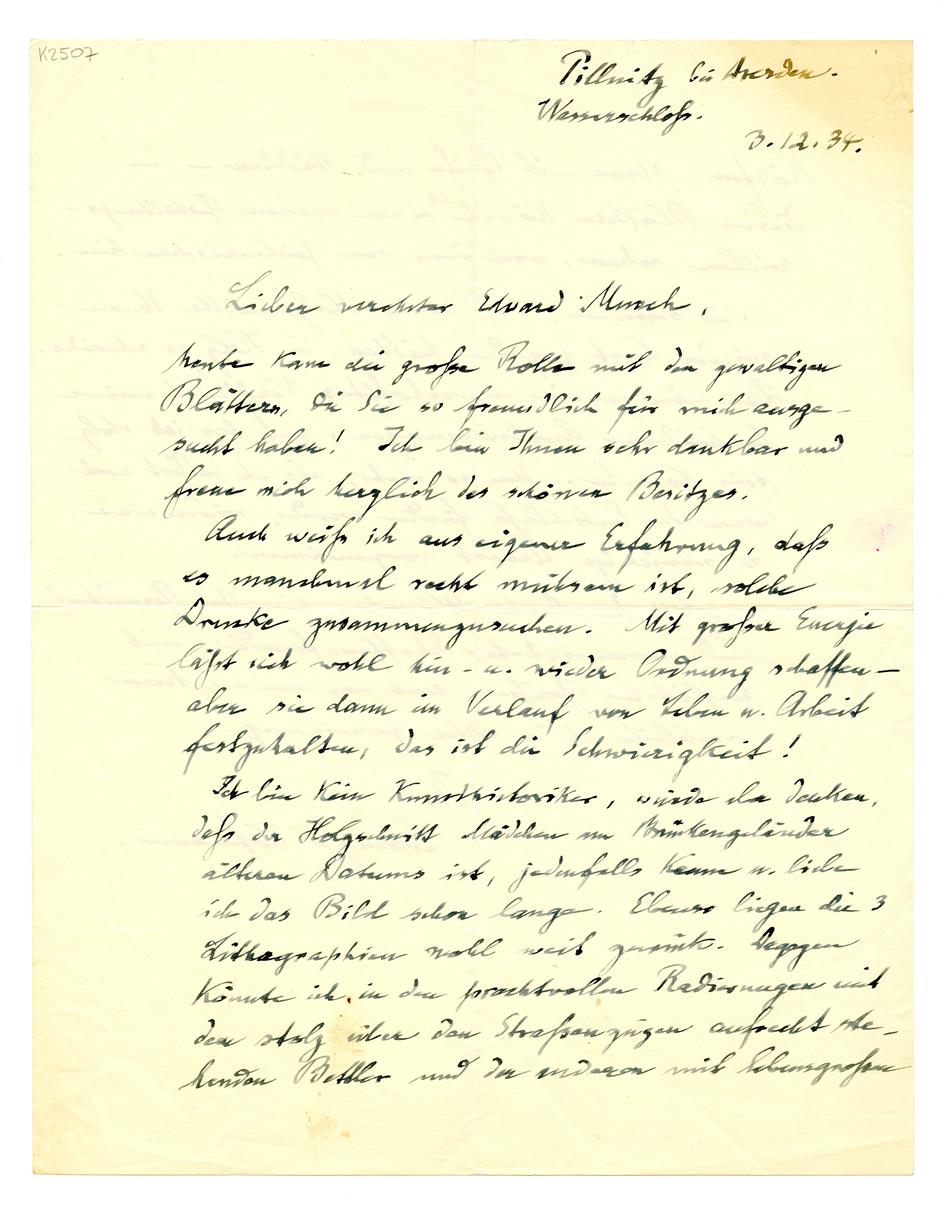 K2507
Pillnitz bei Dresden.
Wasserschloß.
3.12.34.
Lieber verehrter Edvard Munch,
heute kam die große Rolle mit den gewaltigen
Blättern, die Sie so freundlich für mich ausge-
sucht haben! Ich bin Ihnen sehr dankbar und
freue mich herzlich des schönen Besitzes.
Auch weiß ich aus eigener Erfahrung, daß
es manchmal recht mühsam ist, solche
Drucke zusammenzusuchen. Mit großer Energie
läßt sich wohl hin- u. wieder Ordnung schaffen –
aber sie dann im Verlauf von Leben u. Arbeit
festzuhalten, das ist die Schwierigkeit!
Ich bin kein Kunsthistoriker, würde aber denken,
daß der Holzschnitt Mädchen am Brückengeländer
älteren Datums ist, jedenfalls kenne u. liebe
ich das Bild schon lange. Ebenso liegen die 3
Lithographien wohl weit zurück. Dagegen
könnte ich in den prachtvollen Radierungen mit
den stolz über den Straßenzügen aufrecht ste-
henden Bettler und der anderen mit lebensgroßen